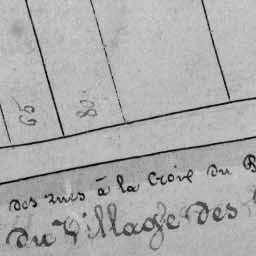 69
80
des rues à la Croix du B
du Village des